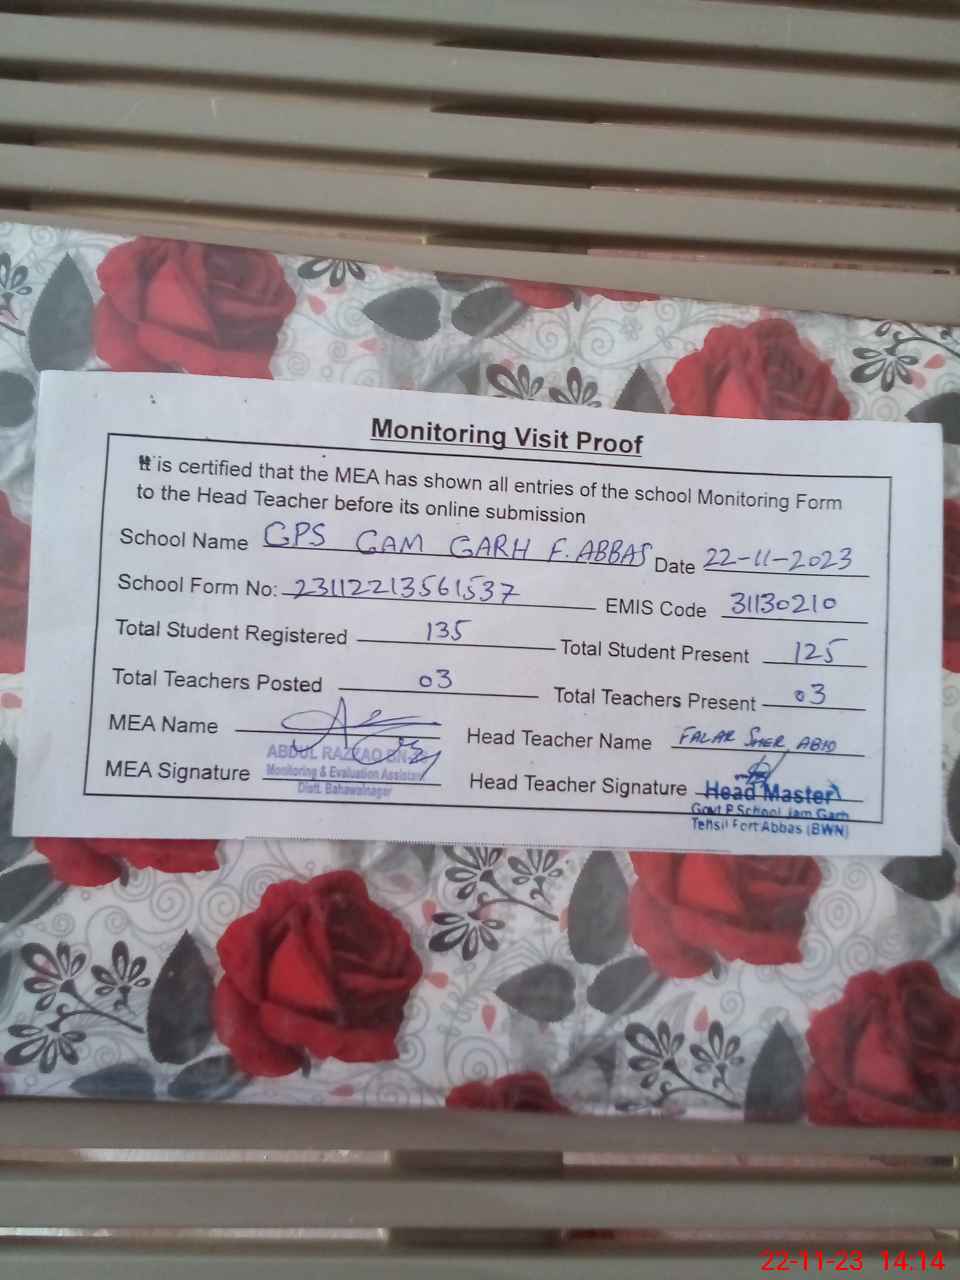 Monitoring Visit Proof
It is certified that the MEA has shown all entries of the school Monitoring Form
to the Head Teacher before its online submission
School Name GPS GAM GARH F. ABBAS Date 22-11-2023
School Form No: 23112213561537 EMIS Code 31130210
Total Student Registered 135 Total Student Present 125
Total Teachers Posted 03 Total Teachers Present 03
MEA Name Head Teacher Name SHER
ABDUL RAZZAQ
MEA Signature Monitoring & Evaluation Assistant Head Teacher Signature Head Master
Distt. Bahawalnagar
Govt P School Jam Garh
Tehsil Fort Abbas (BWN)
22-11-23 14:14